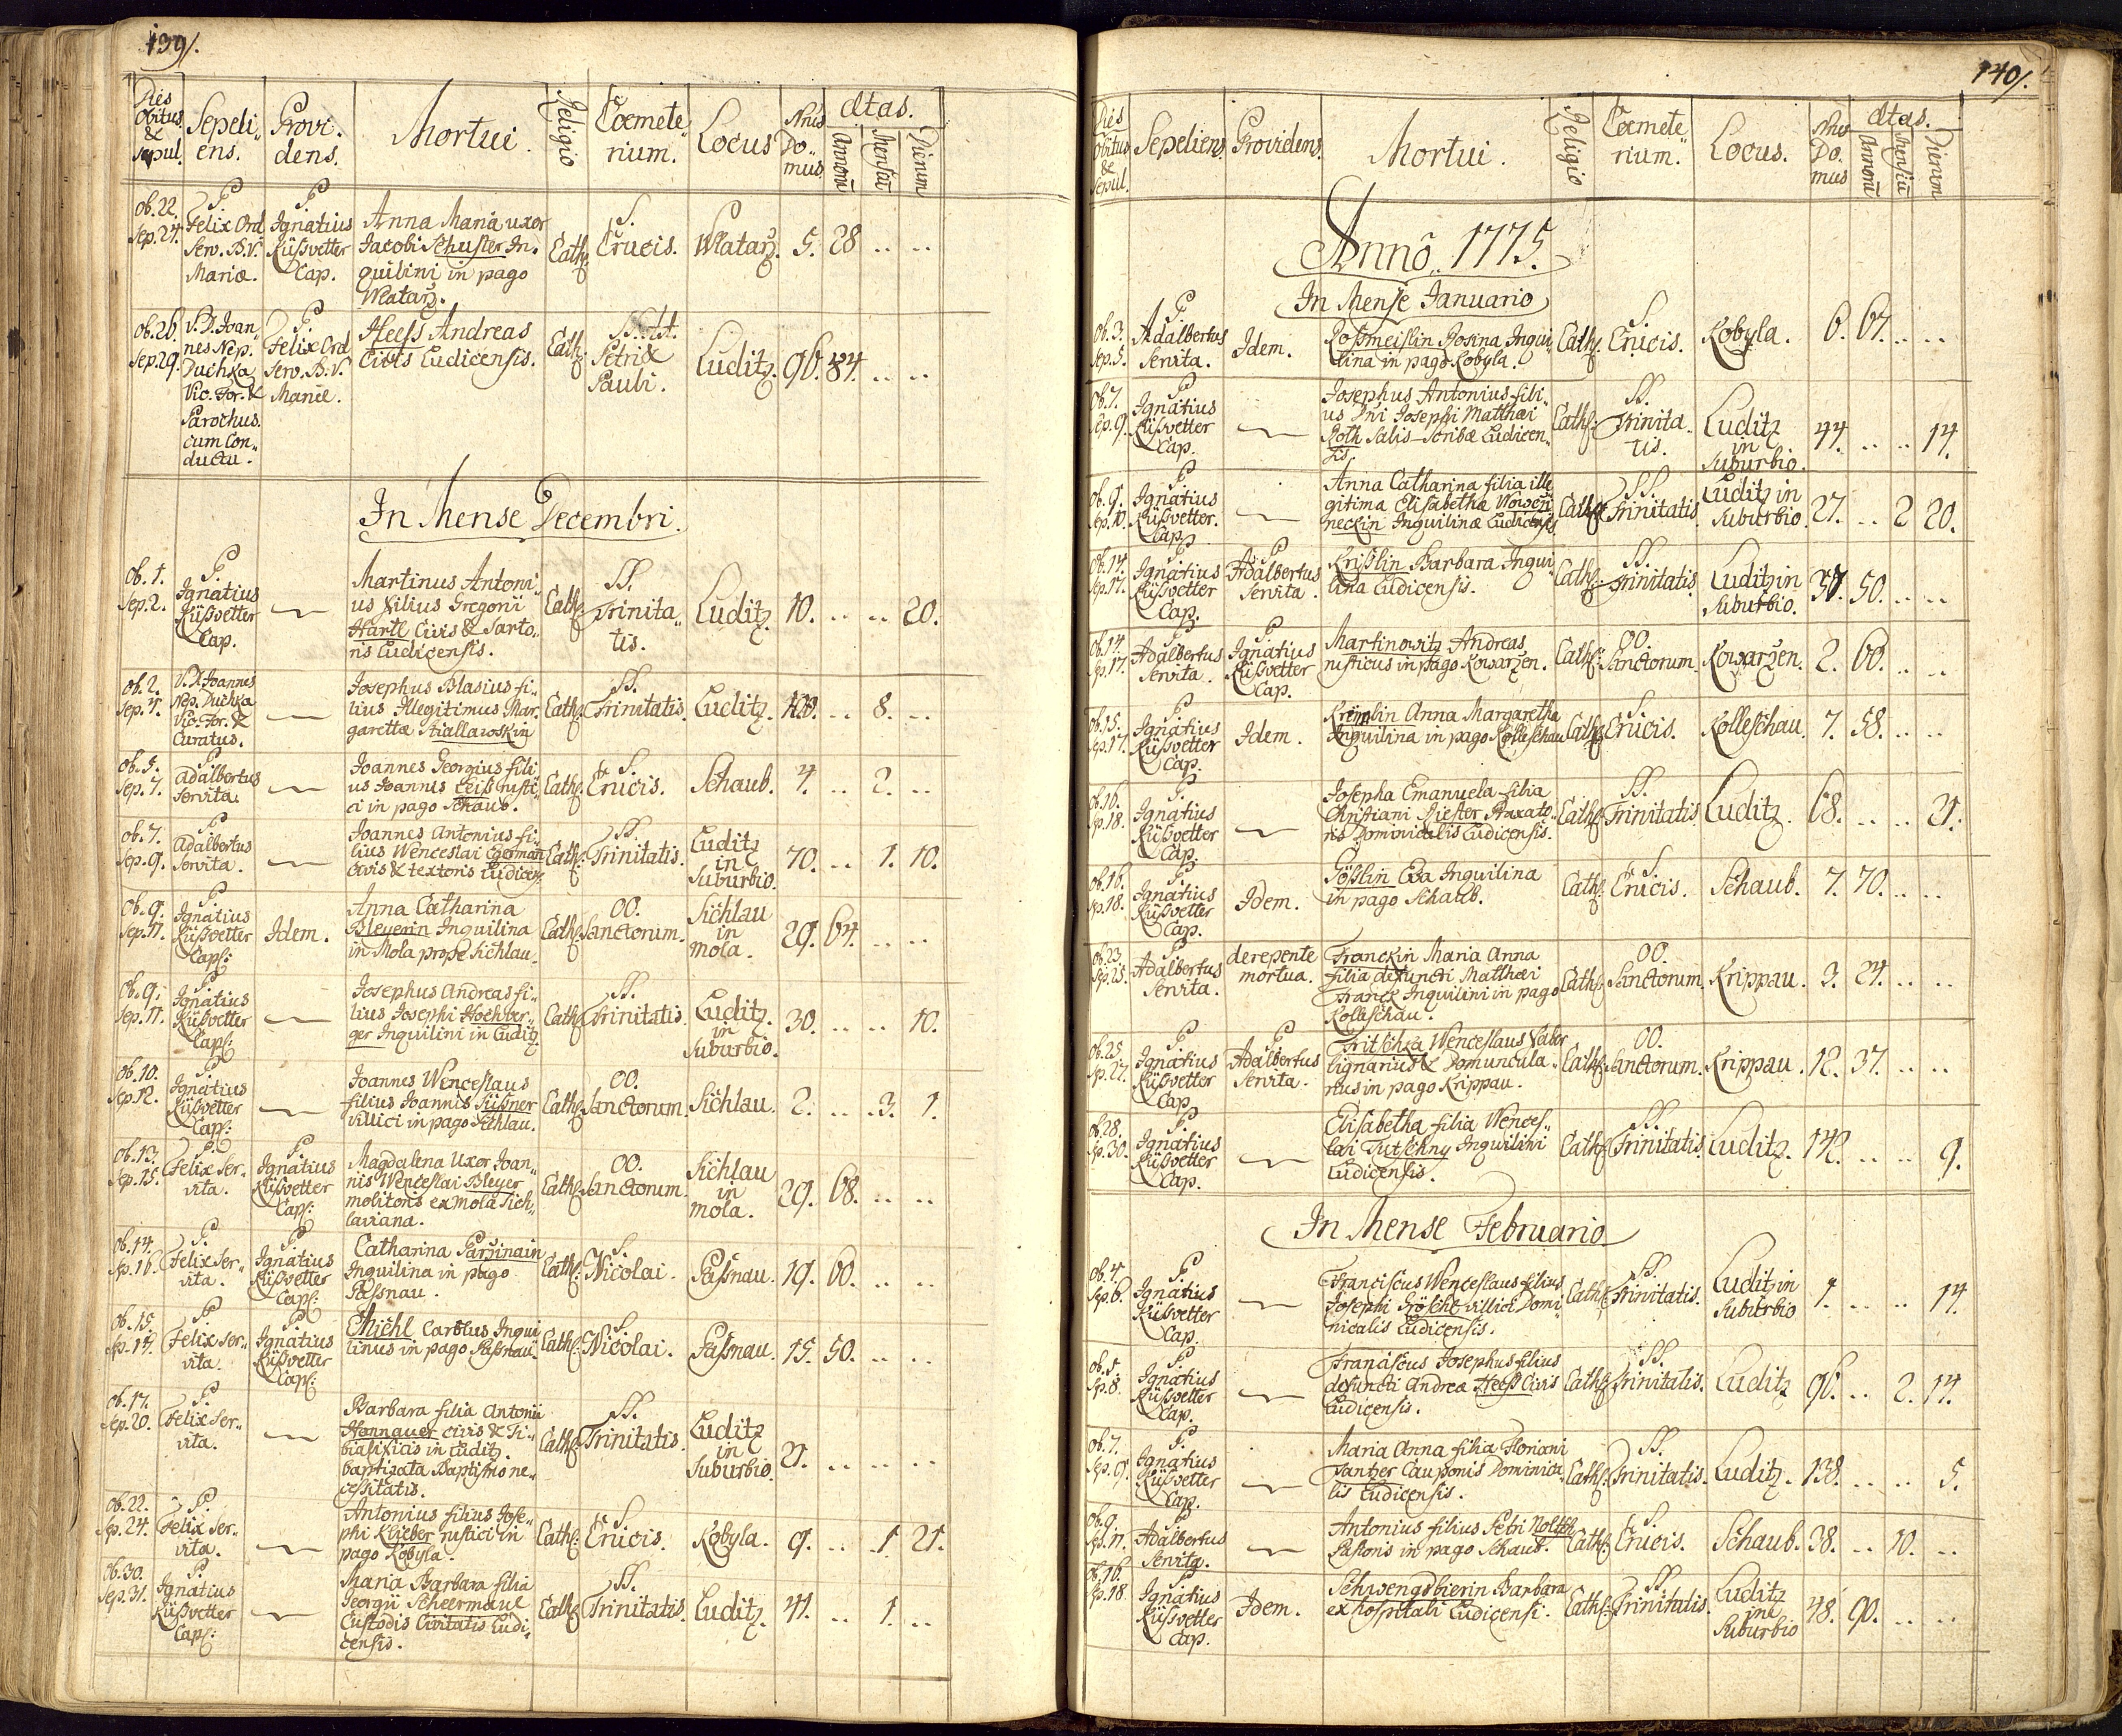 139/.
Dies Obitus & sepul. Sepeliens. Providens. Mortui. Religio Coemeterium. Locus Nrus Domus Ætas. Annorū Mensiū Dierum
ob. 22. Sep. 24. P. Felix Ord. Serv. B.V. Mariæ. P. Ignatius Küssvetter Cap. Anna Maria uxor Jacobi Schuster Inquilini in pago Cath: S. Crucis. 5. 28 .. ..
ob. 26. Sep. 29. V.D. Joannes Nep. Duchka Vic. For. & Parochus. cum Conductu. P. Felix Ord Serv. B.V. Mariæ. Heess Andreas Civis Ludicensis. Cath: Petri & Pauli. Luditz. 96. .. ..
In Mense Decembri.
ob. 1. Sep. 2. P. Ignatius Küssvetter Cap. Martinus Antonius filius Gregorii Hartl Civis & Sartoris Ludicensis. Cath: SS. Trinitatis. Luditz. 10. .. .. 20.
ob. 2. Sep. 4. V.D. Joannes Nep. Duchka Vic. For. & Curatus. Josephus Blasius filius Illegitimus Margarettæ Cath: SS. Trinitatis. Luditz. .. 8. ..
ob. 5. Sep. 7. P. Adalbertus Servita. Joannes Georgius filius Joannis Leiss rustici in pago Schaub. Cath: S. Crucis. Schaub. 4. .. 2. ..
ob. 7. Sep. 9. P. Adalbertus Servita. Joannes Antonius filius Wenceslai civis & textoris Ludicen: Cath: SS. Trinitatis. Luditz in Suburbio. 70. .. 1. 10.
ob. 9. Sep. 11. P. Ignatius Küssvetter Cap: Idem. Anna Catharina Bleyerin Inquilina in Mola prope Sichlau. Cath: OO. Sanctorum. Sichlau in mola. 29. 64. .. ..
ob. 9. Sep. 11. P. Ignatius Küssvetter Cap: Josephus Andreas filius Josephi Hochberger Inquilini in Luditz. Cath: SS. Trinitatis. Luditz. in Suburbio. 30. .. .. 10.
ob. 10. Sep. 12. P. Ignatius Küssvetter Cap: Joannes Wenceslaus filius Joannis Süssner villici in pago Sichlau. Cath: OO. Sanctorum. Sichlau. 2. .. 3. 1.
ob. 13. Sep. 15. P. Felix Servita. P. Ignatius Küssvetter Cap: Magdalena Uxor Joannis Wenceslai Bleyer molitoris ex mola Sichlaviana. Cath: OO. Sanctorum. Sichlau in mola. 29. 68. .. ..
ob. 14. Sep. 16. P. Felix Servita. P. Ignatius Küssvetter Cap: Catharina Inquilina in pago Passnau. Cath: S. Nicolai. Passnau. 19. 60. .. ..
ob. 15. P. Felix Servita. P. Ignatius Küssvetter Cap: Michl Carolus Inquilinus in pago Passnau. Cath: S. Nicolai. Passnau. 15. 50. .. ..
ob. 17. Sep. 20. P. Felix Servita. Barbara filia Antonii Hannauer civis & Tibialificis in Luditz. baptizata Baptismo necessitatis. Cath: SS. Trinitatis. Luditz in Suburbio. 21. .. .. ..
ob. 22. Sep. 24. P. Felix Servita. Antonius filius Josephi Klieber rustici in pago Kobyla. Cath: S. Crucis. Kobyla. 9. .. 1. 21.
ob. 30. Sep. 31. P. Ignatius Küssvetter Cap: Maria Barbara filia Georgii Scheermaul Custodis Civitatis Ludicensis. Cath: SS. Trinitatis. Luditz. 41. .. 1. ..
140/.
Dies Obitus & Sepul. Sepeliens. Providens. Mortui. Religio Coemeterium. Locus. Nrus Domus Ætas. Annorū Mensiū Dierum
Anno 1775.
In Mense Januario
ob. 3. Sep. 5. P. Adalbertus Servita. Idem. Rossmeislin Rosina Inquilina in pago Kobyla. Cath: S. Crucis. Kobyla. 6. 67. .. ..
ob. 7. Sep. 9. P. Ignatius Küssvetter Cap. Josephus Antonius filius Dni Josephi Matthæi Roth Salis-Scribæ Ludicensis. Cath: SS. Trinitatis. Luditz in Suburbio. 44. .. .. 14.
ob. 9. Sep. 10. P. Ignatius Küssvetter. Cap. Anna Catharina filia illegitima Elisabethæ Inquilinæ Ludicensis Cath: SS. Trinitatis. Luditz in Suburbio. 27. .. 2 20.
ob. 14. Sep. 17. P. Ignatius Küssvetter Cap. P. Adalbertus Servita. Krisslin Barbara Inquilina Ludicensis. Cath: SS. Trinitatis. Luditz in Suburbio. 50. .. ..
ob. 14. Sp. 17. P. Adalbertus Servita. P. Ignatius Küssvetter Cap. Martinowitz Andreas rusticus in pago Kowarzen. Cath: OO. Sanctorum. Kowarzen. 2. 60. .. ..
ob. 15. Sep. 17. P. Ignatius Küssvetter Cap. Idem. Anna Margaretha Inquilina in pago Kolleschau Cath: S. Crucis. Kolleschau. 7. 58. .. ..
ob. 16. Sp. 18. P. Ignatius Küssvetter Cap. Josepha Emanuela filia Christiani Braxatoris Dominicalis Ludicensis. Cath: SS. Trinitatis. Luditz. 68. .. .. 21.
ob. 16. Sp. 18. P. Ignatius Küssvetter Cap. Idem. Gösslin Eva Inquilina in pago Schaub. Cath: S. Crucis. Schaub. 7. 70. .. ..
ob. 23. Sp. 25. P. Adalbertus Servita. derepente mortua. Franckin Maria Anna filia defuncti Matthæi Franck Inquilini in pago Kolleschau. Cath: OO. Sanctorum. Krippau. 3. 24. .. ..
ob. 25. Sp. 27. P. Ignatius Küssvetter Cap. P. Adalbertus Servita. Fritschka Wenceslaus Faber lignarius & Domuncularius in pago Krippau. Cath: OO. Sanctorum. Krippau. 12. 37. .. ..
ob. 28. Sp. 30. P. Ignatius Küssvetter Cap. Elisabetha filia Wenceslai Tutschny Inquilini Ludicensis. Cath: SS. Trinitatis. Luditz. 142. .. .. 9.
In Mense Februario
ob. 4. Sep. 6. P. Ignatius Küssvetter Cap. Franciscus Wenceslaus filius Josephi Gröschl villici Dominicalis Ludicensis. Cath: SS. Trinitatis. Luditz in Suburbio 1. .. .. 14.
ob. 5. Sp. 8. P. Ignatius Küssvetter Cap. Franciscus Josephus filius defuncti Andreæ Heess Civis Ludicensis. Cath: SS. Trinitatis. Luditz 96. .. 2. 14.
ob. 7. Sep. 9. P. Ignatius Küssvetter Cap. Maria Anna filia Floriani Tantzer Cauponis Dominicalis Ludicensis. Cath: SS. Trinitatis. Luditz. 138. .. .. 5.
ob. 9. Sp. 11. P. Adalbertus Servita. Antonius filius Petri Pastoris in pago Schaub. Cath: S. Crucis. Schaub. 38. .. 10. ..
ob. 16. Sp. 18 P. Ignatius Küssvetter Cap. Idem. Schwengsbierin Barbara ex hospitali Ludicensi. Cath: SS. Trinitatis. Luditz in Suburbio 48. 90. .. ..